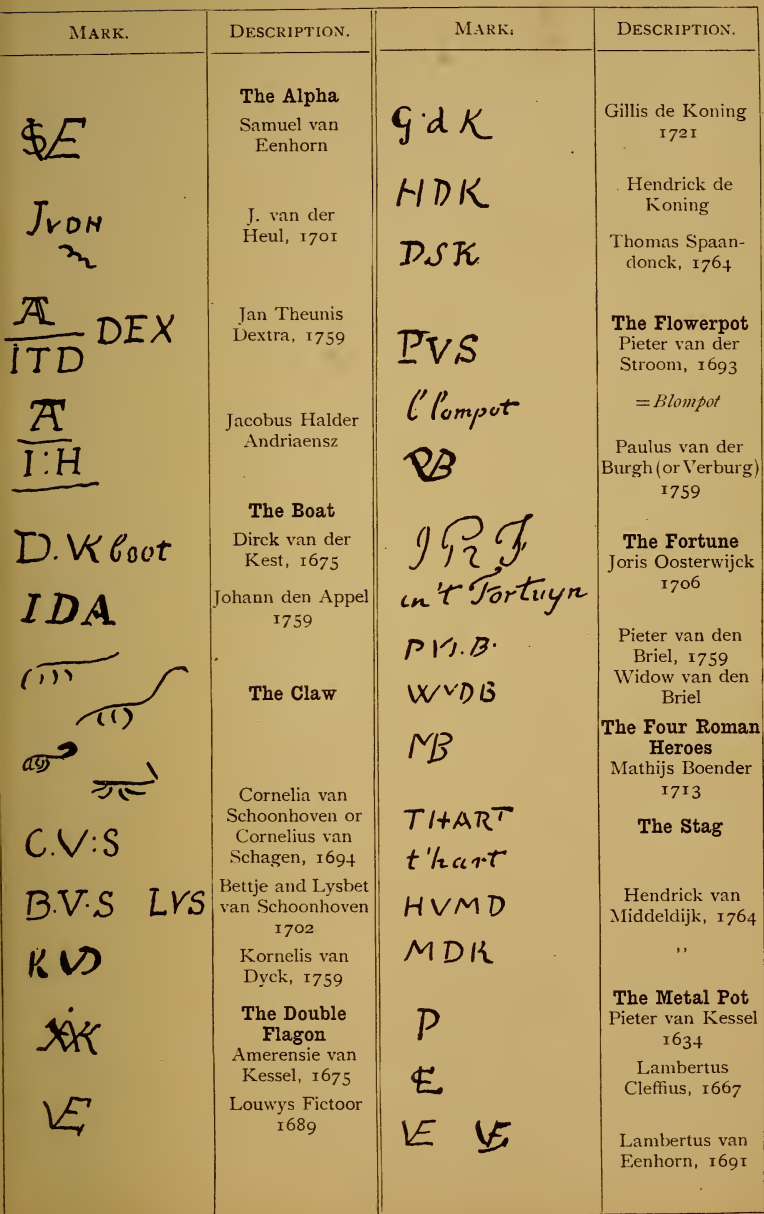 MARK.
DESCRIPTION.
The Alpha
SE
Samuel van
Eenhorn
JVDH
J. van der
Heul, 1701
A
ITD DEX
Jan Theunis
Dextra, 1759
A
I:H
Jacobus Halder
Andriaensz
The Boat
D. VK boot
Dirck van der
Kest, 1675
IDA
Johann den Appel
1759
The Claw
C.V:S
Cornelia van
Schoonhoven or
Cornelius van
Schagen, 1694
B.V.S LVS
Bettje and Lysbet
van Schoonhoven
1702
KVD
Kornelis van
Dyck, 1759
The Double
Flagon
Amerensie van
Kessel, 1675
VE
Louwys Fictoor
1689
MARK.
DESCRIPTION.
G·d K
Gillis de Koning
1721
HDK
Hendrick de
Koning
DSK
Thomas Spaan-
donck, 1764
The Flowerpot
PVS
Pieter van der
Stroom, 1693
=Blompot
PB
Paulus van der
Burgh (or Verburg)
1759
The Fortune
Joris Oosterwijck
1706
in't Fortuyn
Pieter van den
Briel, 1759
WVDB
Widow van den
Briel
The Four Roman
Heroes
MB
Mathijs Boender
1713
THART
t'hart
The Stag
HVMD
Hendrick van
Middeldijk, 1764
MDK
,,
The Metal Pot
P
Pieter van Kessel
1634
Lambertus
Cleffius, 1667
VE VE
Lambertus van
Eenhorn, 1691